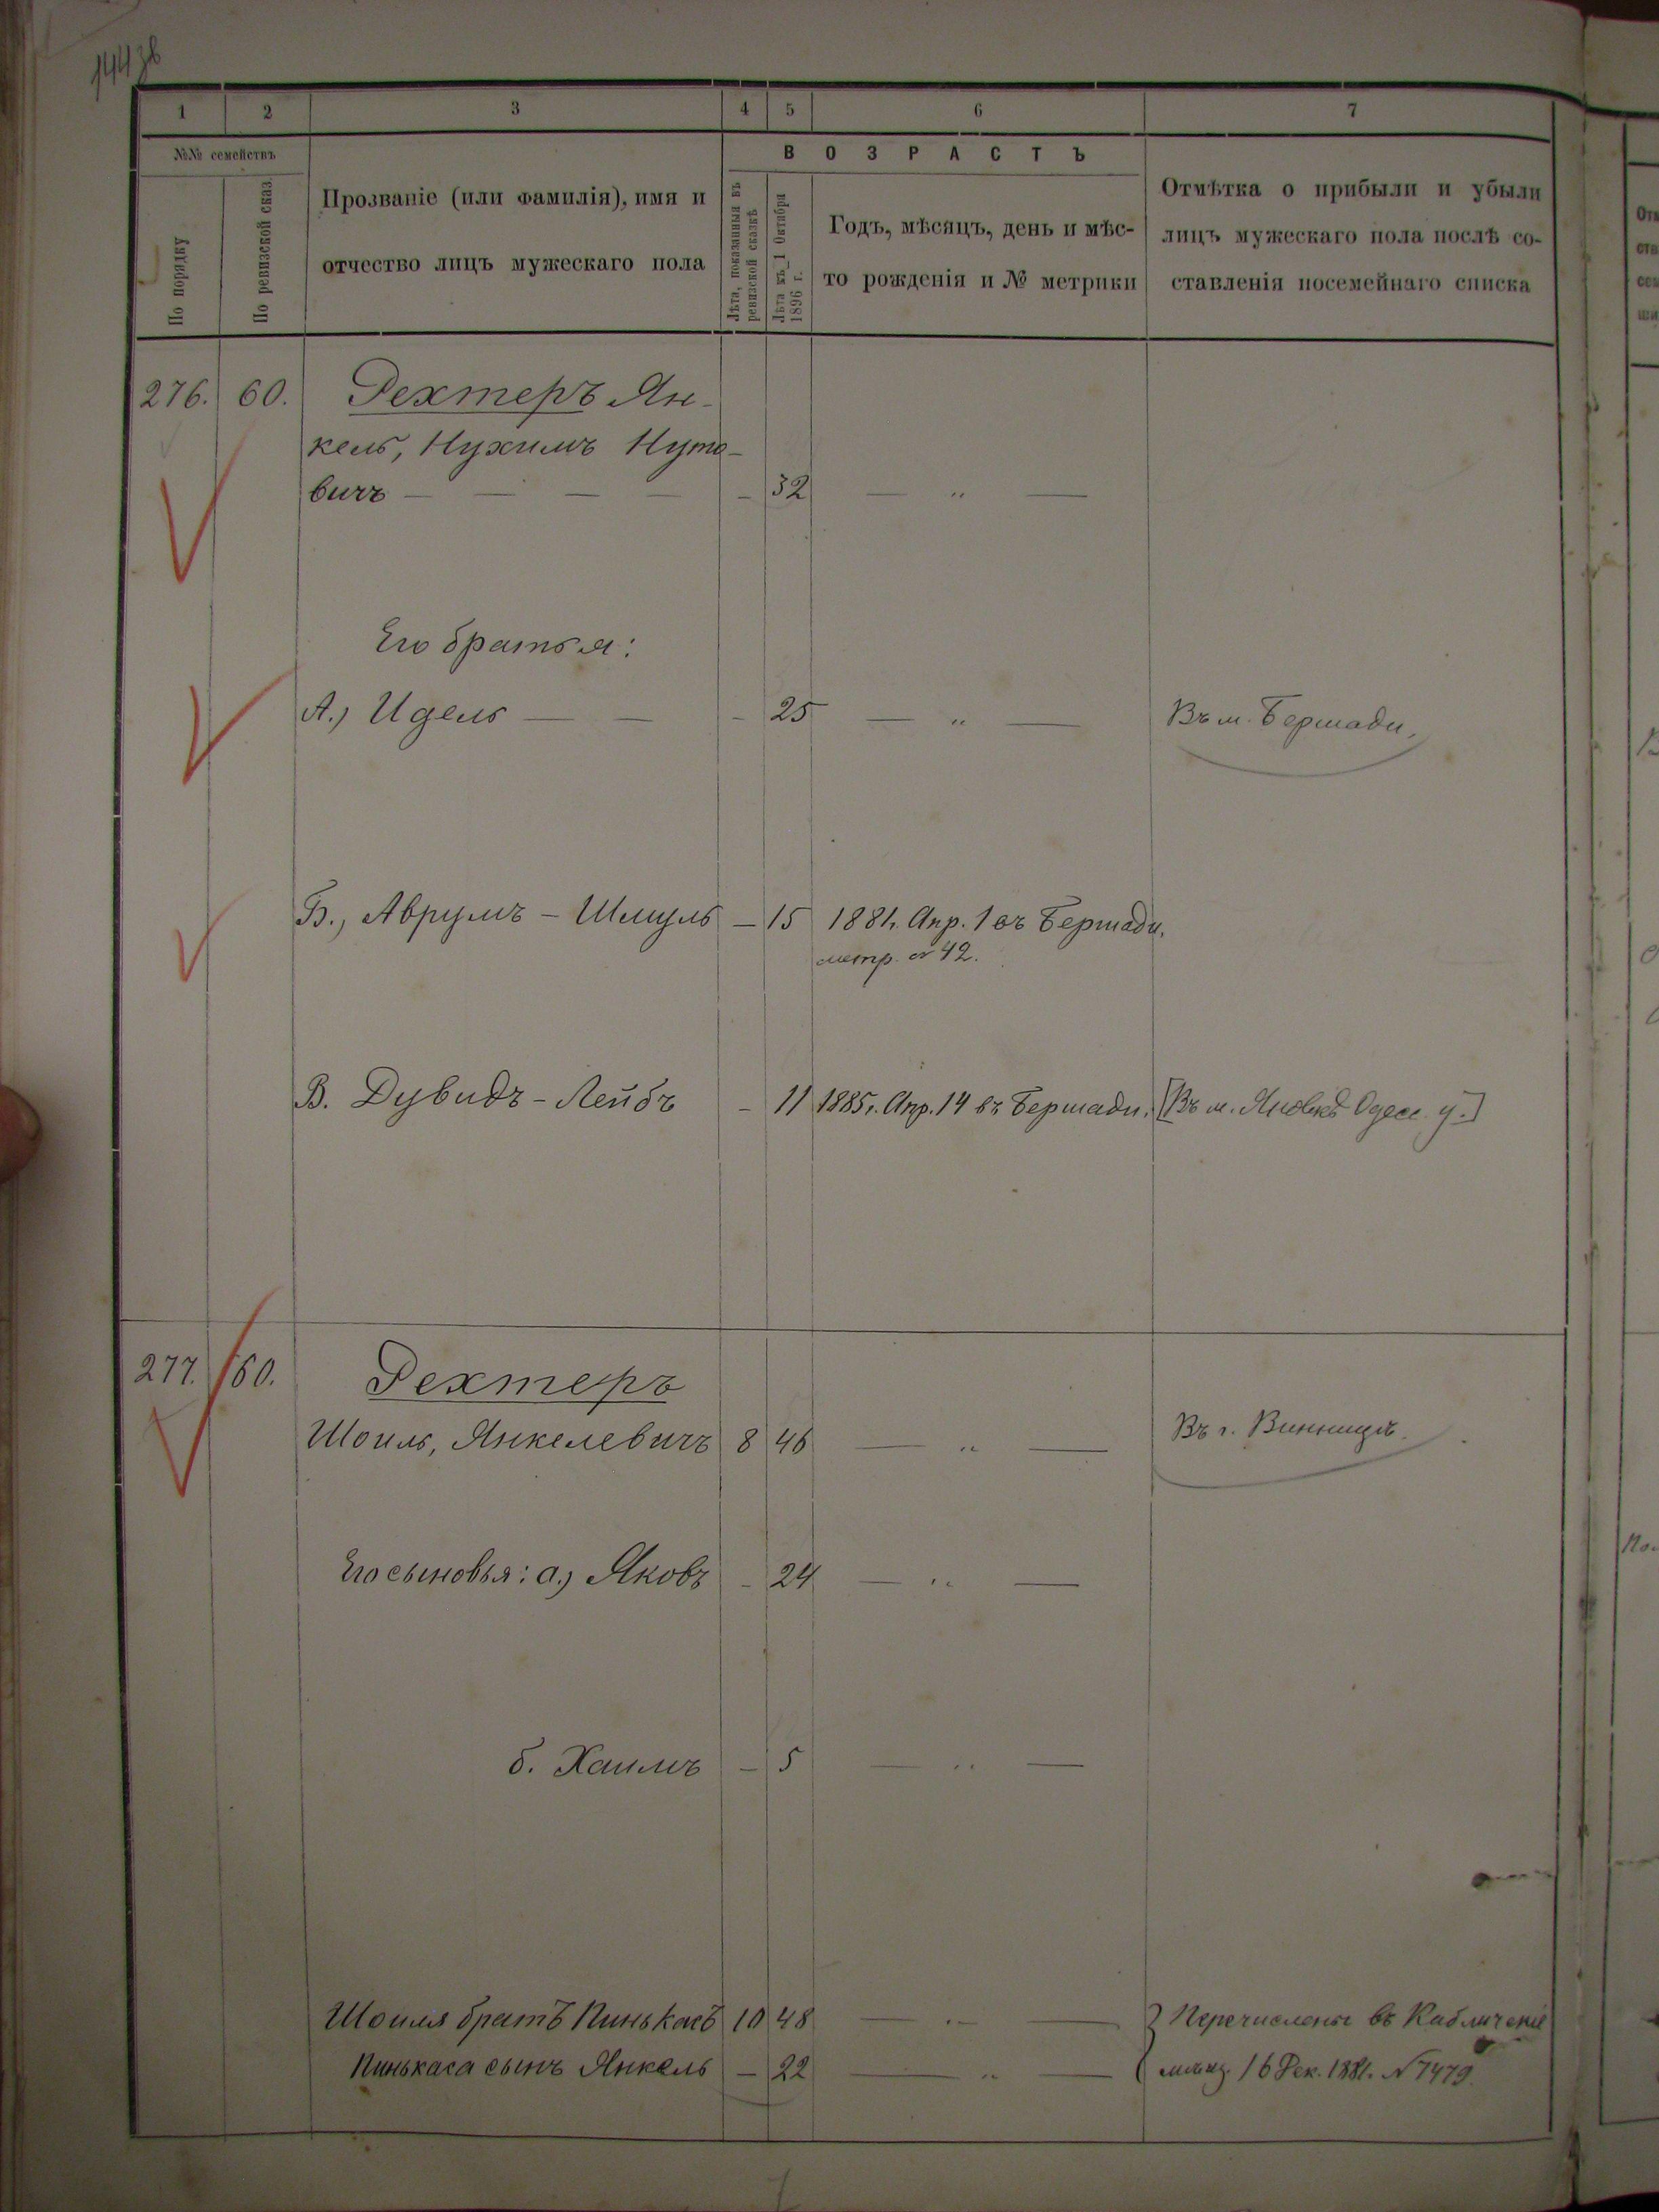 144 зв
1 2 3 4 5 6 7
№№ семействъ
По порядку
По ревизской сказ.
Прозваніе (или фамилія), имя и
отчество лицъ мужескаго пола
ВОЗРАСТЪ
Лѣта, показанныя въ
ревизской сказкѣ
Лѣта къ 1 Октября
1896 г.
Годъ, мѣсяцъ, день и мѣс-
то рожденія и № метрики
Отмѣтка о прибыли и убыли
лицъ мужескаго пола послѣ со-
ставленія посемейнаго списка
276. 60. Рехтеръ Ян-
кель, Нухимъ Нуто-
вичъ — — — — - 32 — „ —
Его братья:
А.) Идель — — - 25 — „ — Въ м. Бершади.
Б., Аврумъ - Шмуль — 15 1881. Апр. 1 въ Бершади.
метр. № 42.
В. Дувидъ - Лейбъ - 11 1885 г. Апр. 14 въ Бершади. [Въ м. Яновкѣ Одесс. у.]
277. 60. Рехтеръ
Шоиль, Янкелевичъ 8 46 — „ — Въ г. Винницѣ.
Его сыновья: а.) Яковъ - 24 — „ —
б. Хаимъ — 5 — „ —
Шоиля братъ Пинькасъ 10 48 — „ — Перечислены въ
Пинькаса сынъ Янкель — 22 — „ — 16 Дек. 1881. № 7479.